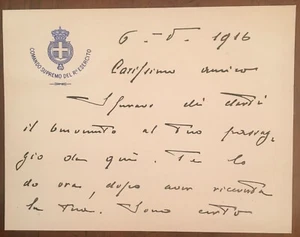 COMANDO SUPREMO DEL R° ESERCITO
6 - 5 - 1916
Carissimo amico
Speravo di darti
il benvenuto al tuo passag-
gio da qui. Te lo
do ora, dopo aver ricevuta
la tua. Sono certo